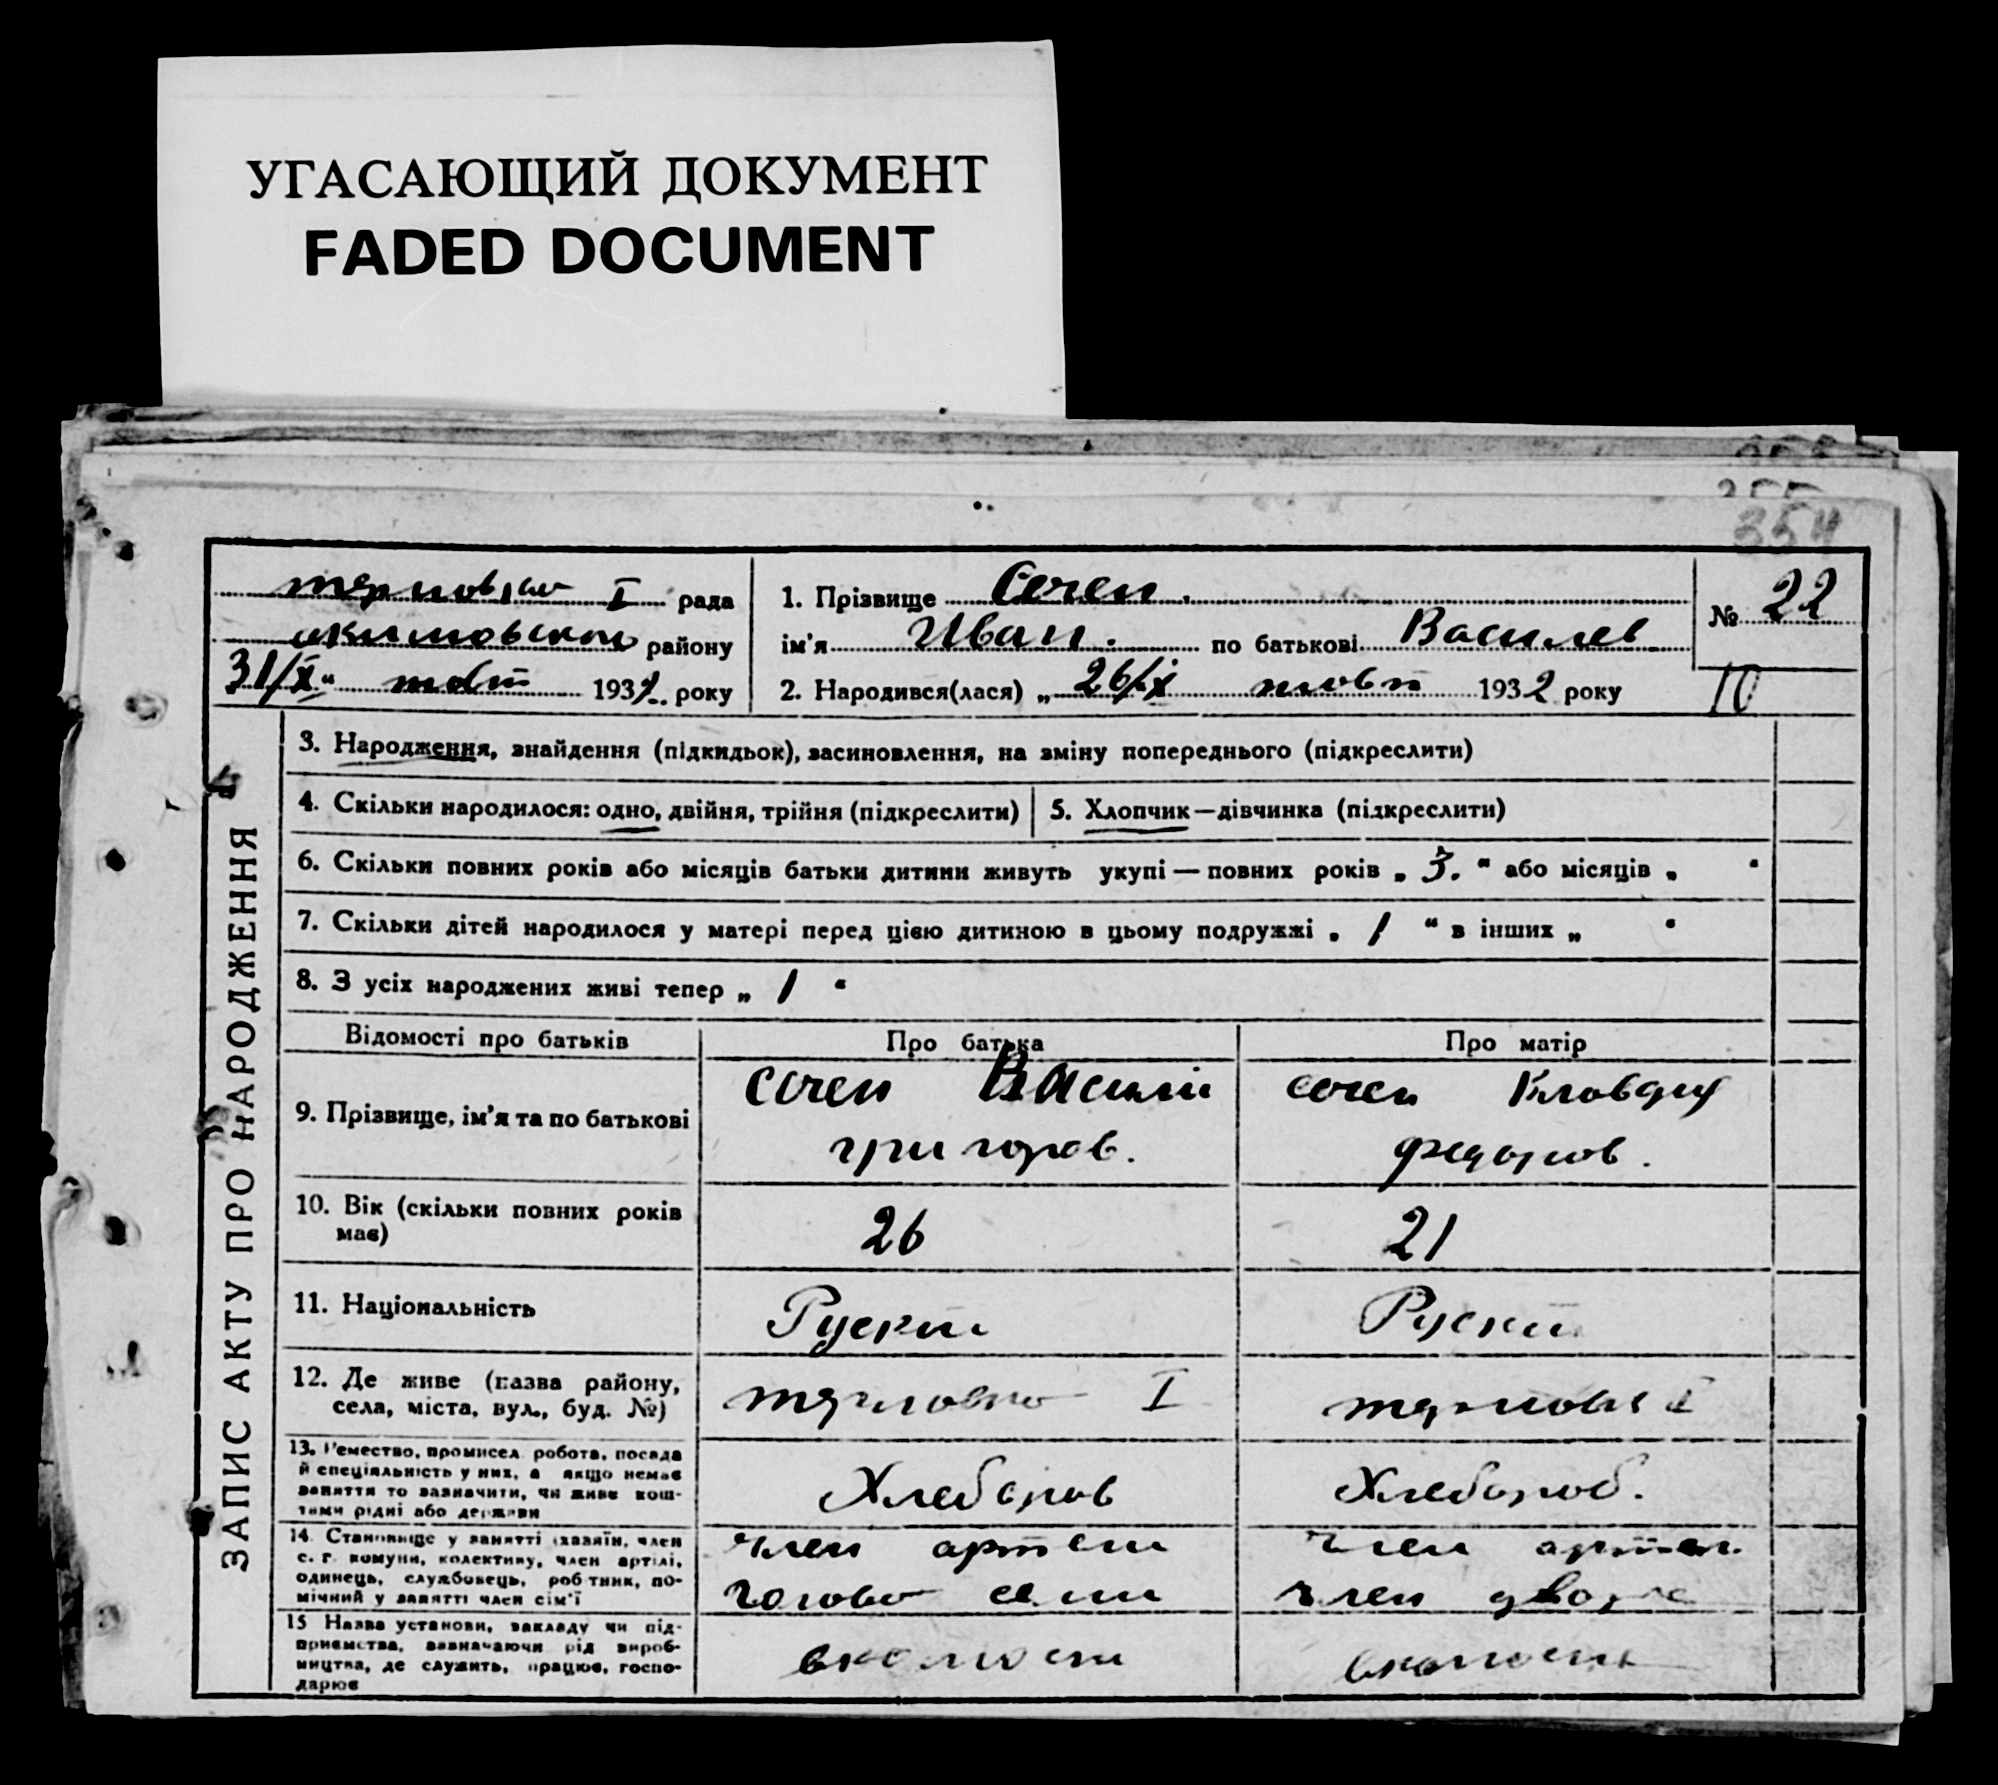 УГАСАЮЩИЙ ДОКУМЕНТ
FADED DOCUMENT
354
I рада
району
31/X" 1932 року
1. Прізвище Сечен.
ім'я Иван. по батькові Василев
2. Народився(лася) „26/IX 1932 року
№ 22
10
ЗАПИС АКТУ ПРО НАРОДЖЕННЯ
3. Народження, знайдення (підкидьок), засиновлення, на зміну попереднього (підкреслити)
4. Скільки народилося: одно, двійня, трійня (підкреслити)
5. Хлопчик—дівчинка (підкреслити)
6. Скільки повних років або місяців батьки дитини живуть укупі — повних років „ 3. “ або місяців „ “
7. Скільки дітей народилося у матері перед цією дитиною в цьому подружжі „ 1 “ в інших „ “
8. З усіх народжених живі тепер „ 1 “
Відомості про батьків Про батька Про матір
9. Прізвище, ім'я та по батькові
сечен Васили
григоров.
сечен Клавдия
федоров.
10. Вік (скільки повних років
має)
26 21
11. Національність
Руский Руский
12. Де живе (назва району,
села, міста, вул., буд. №)
I I
13. Ремество, промисел робота, посада
й спеціяльність у них, а якщо немає
заняття то зазначити, чи живе кош-
тами рідні або держави
Хлебороб Хлебороб.
14. Становище у занятті (хазяїн, член
с. г. комуни, колективу, член артілі,
одинець, службовець, робітник, по-
мічний у занятті член сім'ї
член артели
семи
член артел.
член двора
15 Назва установи, закладу чи під-
приємства, зазначаючи рід вироб-
ництва, де служить, працює, госпо-
дарює